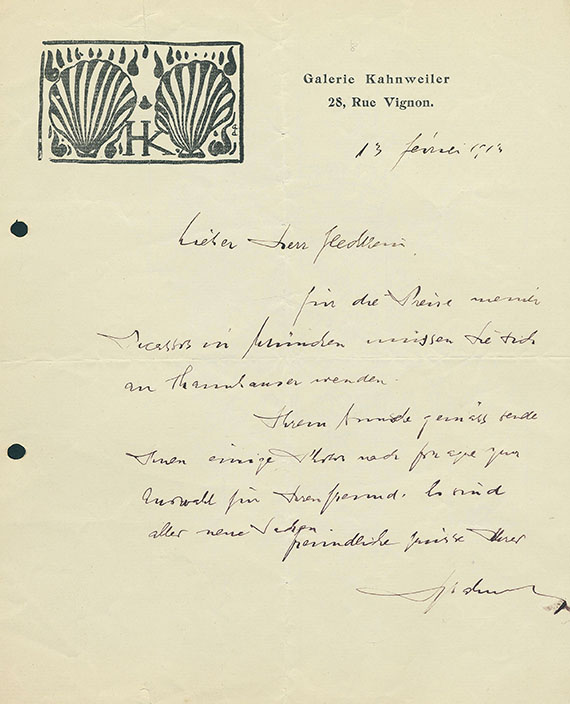 HK
Galerie Kahnweiler
28, Rue Vignon.
13 février 1913
Lieber Herr
für die Preise meiner
Picassos in München müssen Sie sich
an Thannhauser wenden.
Ihrem Wunsche gemäss sende
Ihnen einige Photos nach Prague zur
Auswahl für Ihren Freund. Es sind
alles neue Sachen.
freundliche Grüsse Ihres